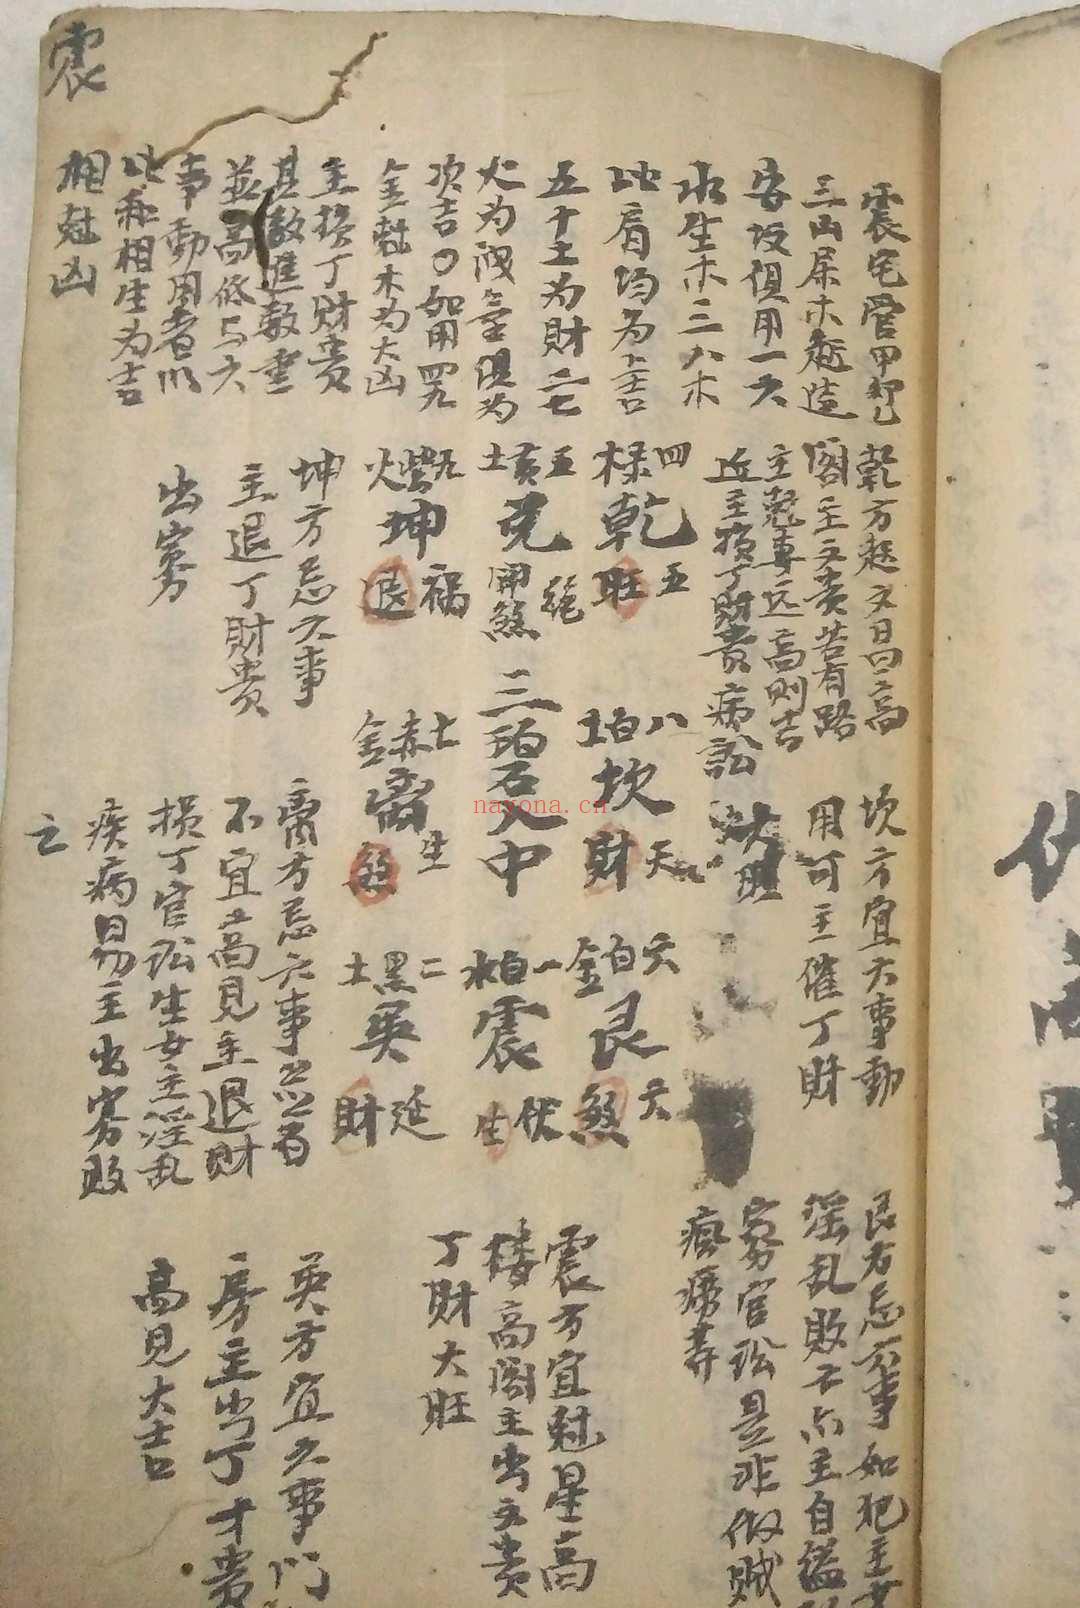 震
震宅管甲卯乙
三山屬木起造
安坟俱用一六
水生木三八木
比肩均为上吉
五十土为財二七
火为洩氣俱为
次吉〇如用四九
金尅木为大凶
主損丁財貴
其敎進數重
並高修与六
事動用者以
比和相生为吉
相尅凶
乾方起文昌高
閣主文貴若有路
主尅專远高则吉
近主損丁財貴病訟
坎方宜六事動
用可主催丁財
大旺
艮方忌六事如犯主
淫乱敗不尔主自縊
窮官訟是非做賊
瘋癆等
四
禄乾五
旺
八
白土坎
財天
六
白金艮六
煞
五
黄土兑
開煞絕
三碧入中
一
白水震
生伏
九
紫火坤
退禍
七
赤金离
煞生
二
黑土巽
財延
坤方忌六事
主退丁財貴
出寡
离方忌六事並有
不宜高見主退財
損丁官訟生女主淫乱
疾病易主出寡敗
之
震方宜尅星高
楼高阁主出文貴
丁財大旺
巽方宜六事門
房主出丁才貴
高見大吉
nayona.cn